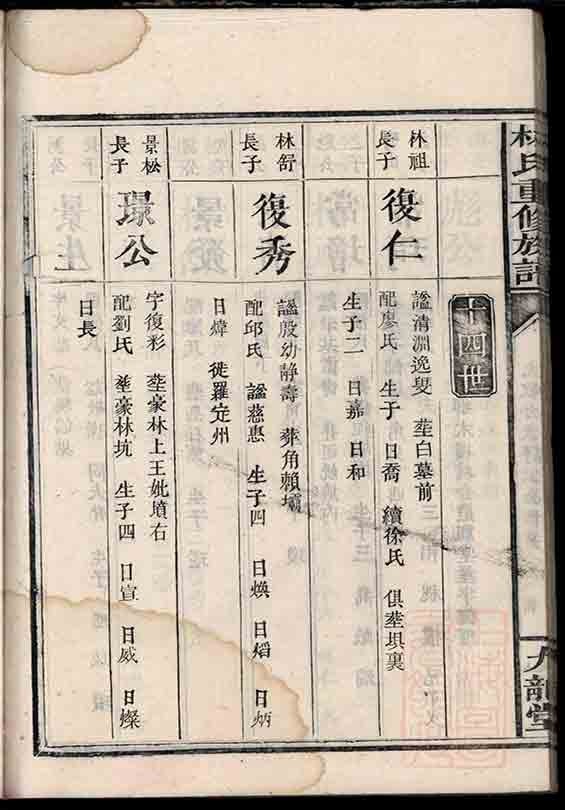 林氏重修族譜
九龍堂
十四世
林祖
長子
復仁
謚清淵逸叟 塟白墓前
配廖氏 生子 日喬 續徐氏 俱塟垻裏
生子二 日嘉 日和
林舒
長子
復秀
謚殷幼靜壽 葬角賴壩
配邱氏 謚慈惠 生子四 日煥 日熖 日炳
日煒 徙羅定州
景松
長子
璟公
字復彩 塟豪林上王妣墳右
配劉氏 塟豪林坑 生子四 日宣 日威 日燦
日長